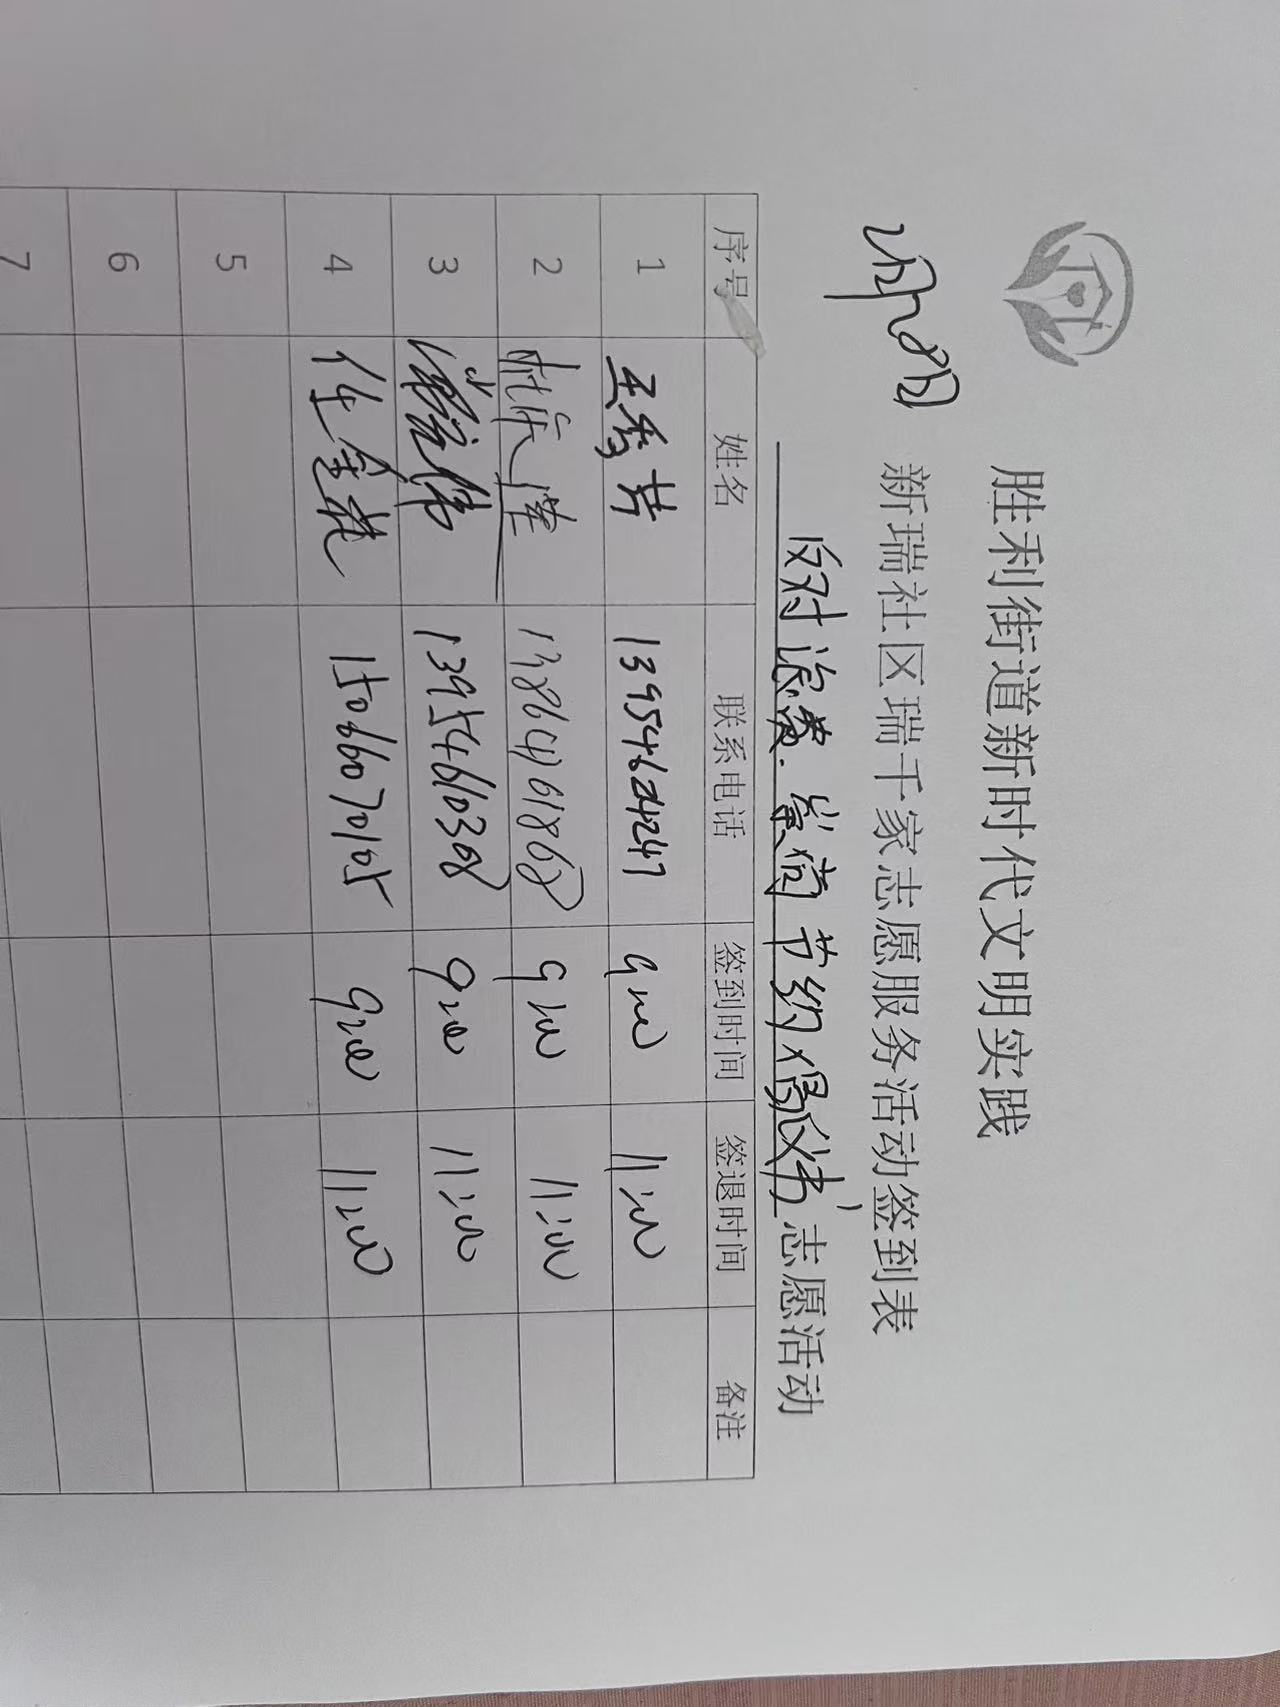 胜利街道新时代文明实践
新瑞社区瑞千家志愿服务活动签到表
反对浪费 崇尚节约 倡议书 志愿活动
序号 姓名 联系电话 签到时间 签退时间 备注
1 王秀芳 13954624247 9:00 11:00
2 13864761868 9:00 11:00
3 伟 13954610308 9:00 11:00
4 任金花 15066070105 9:00 11:00
5
6
7